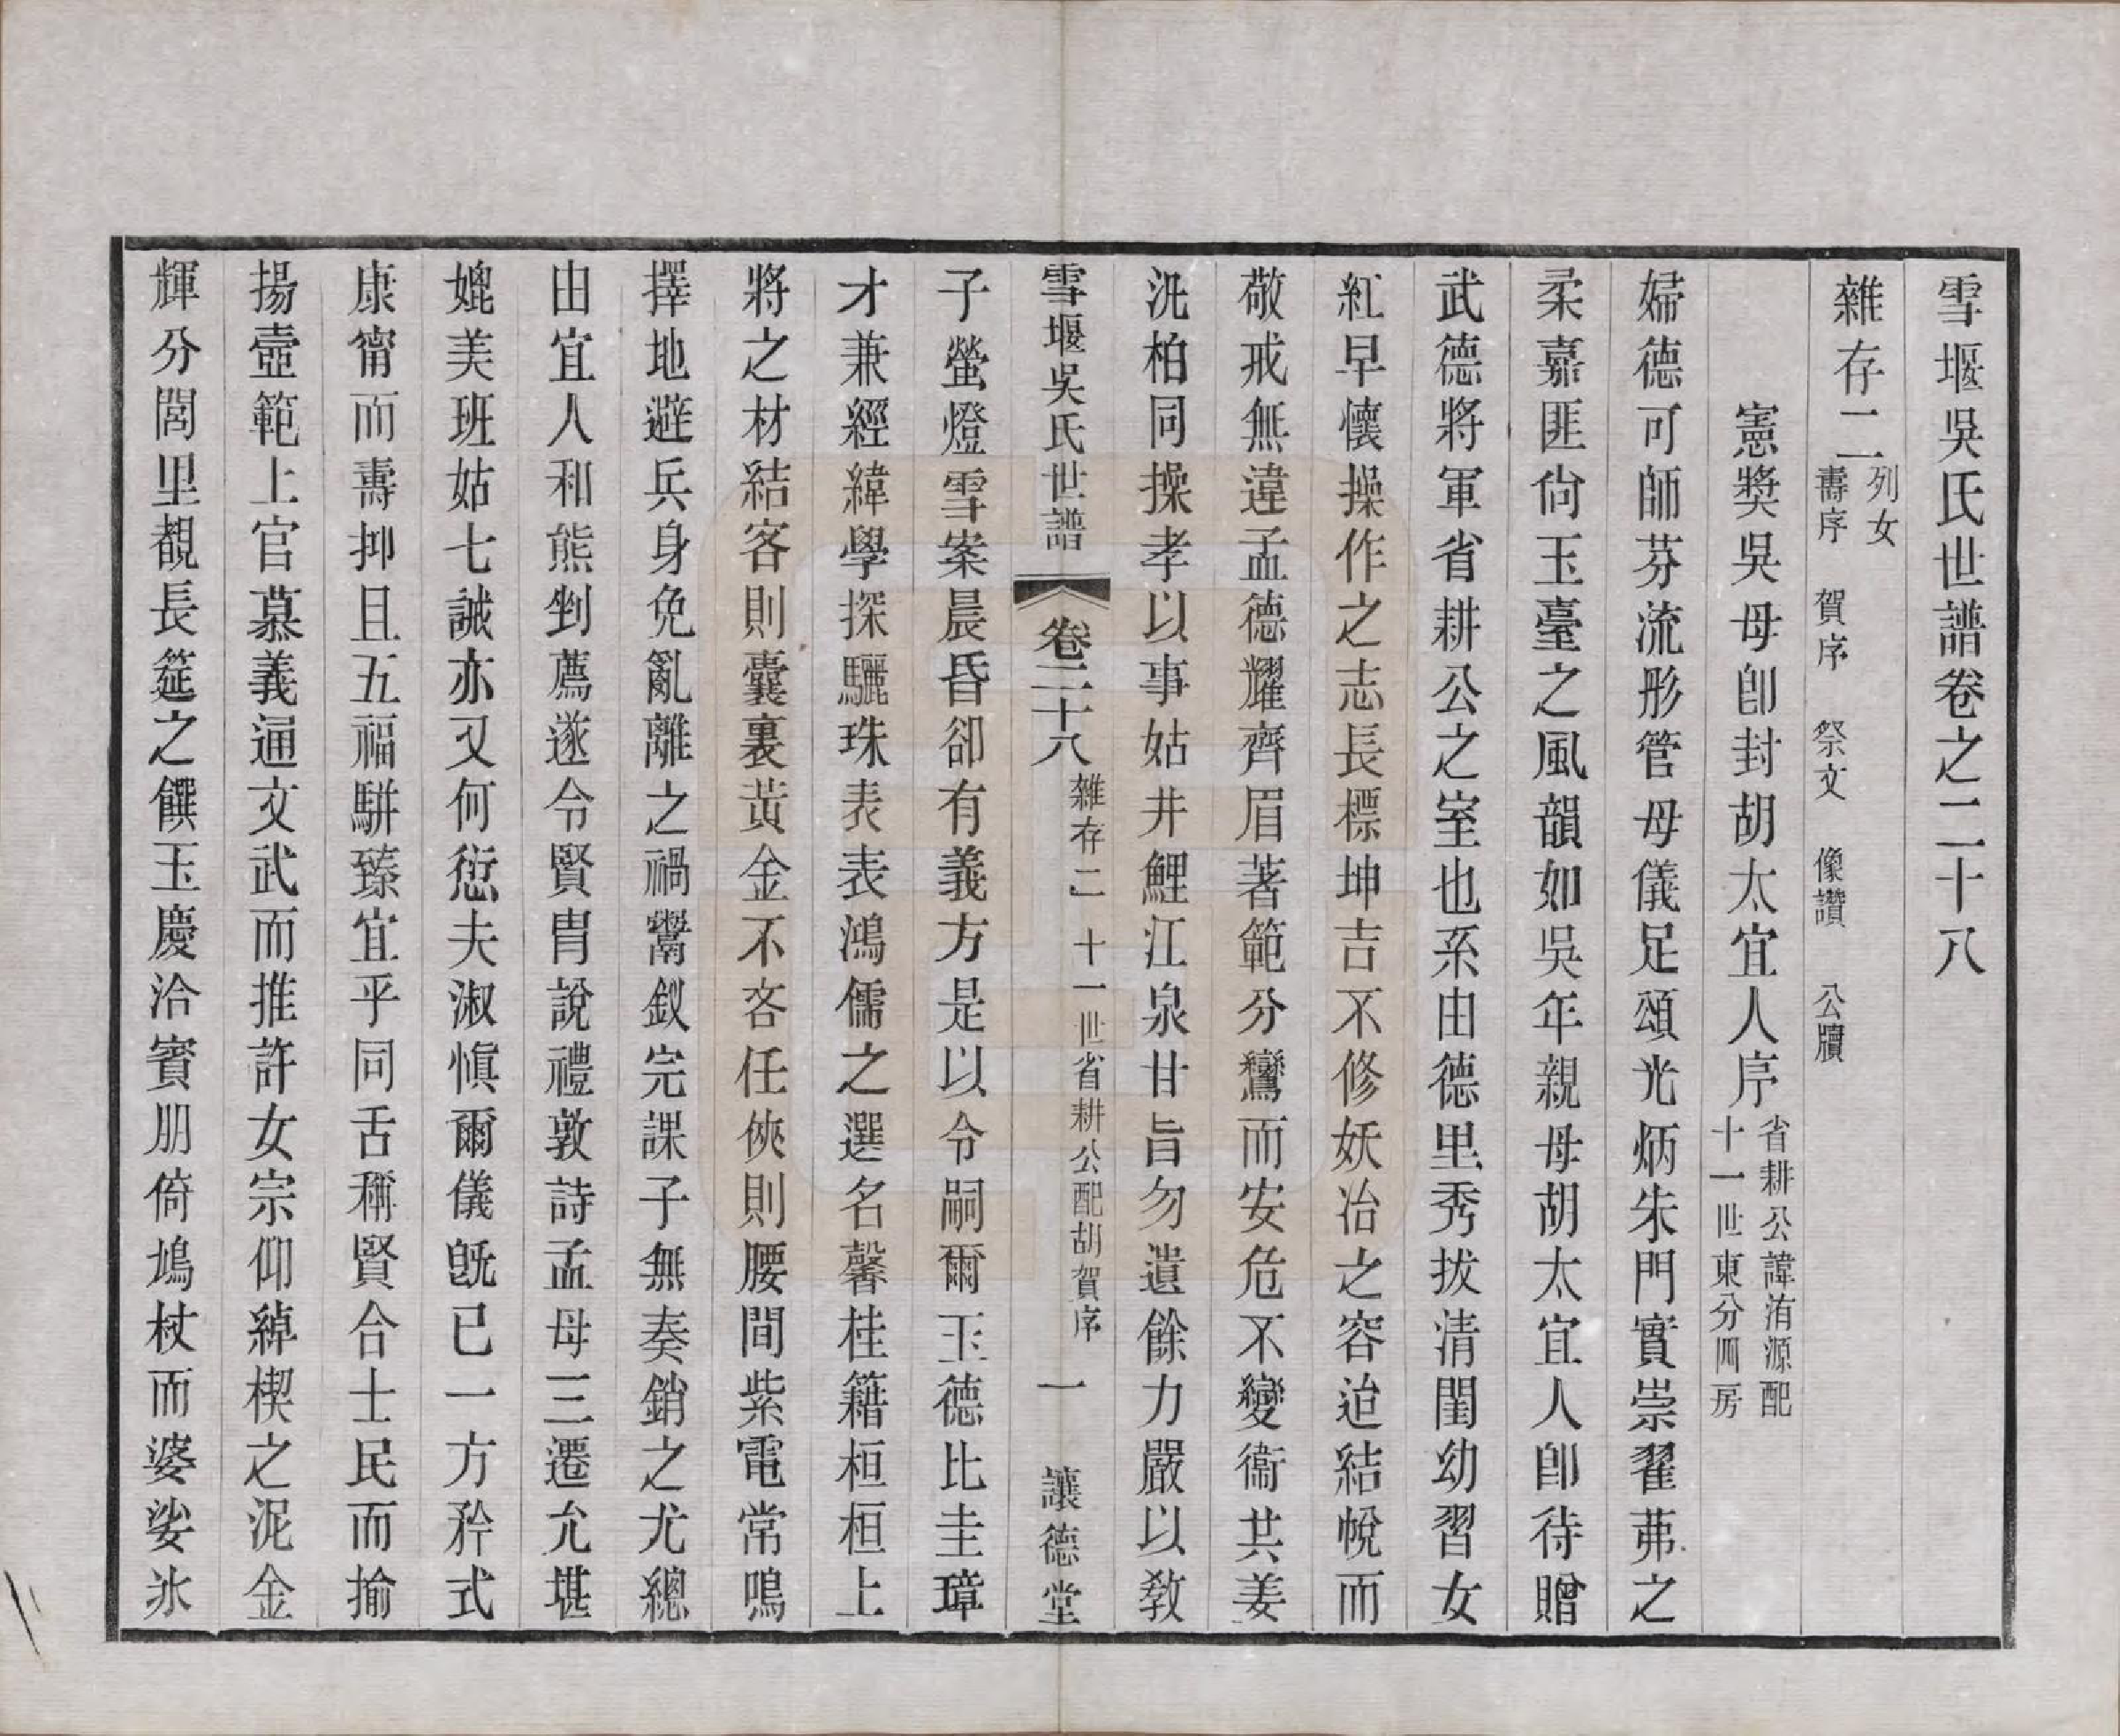 雪堰吳氏世譜卷之二十八
雜存二 列女 壽序 賀序 祭文 像讚 公牘
憲獎吳母卽封胡太宜人序 省耕公諱洧源配 十一世東分四房
婦德可師芬流彤管母儀足頌光炳朱門實崇翟茀之
柔嘉匪尙玉臺之風韻如吳年親母胡太宜人卽待贈
武德將軍省耕公之室也系由德里秀拔清閨幼習女
紅早懷操作之志長標坤吉不修妖冶之容迨結帨而
敬戒無違孟德耀齊眉著範分鸞而安危不變衞共姜
汎柏同操孝以事姑井鯉江泉甘旨勿遺餘力嚴以敎
雪堰吳氏世譜 卷二十八 雜存二 十一世省耕公配胡賀序 一 讓德堂
子螢燈雪案晨昏卻有義方是以令嗣爾玉德比圭璋
才兼經緯學探驪珠表表鴻儒之選名馨桂籍桓桓上
將之材結客則囊裏黃金不吝任俠則腰間紫電常鳴
擇地避兵身免亂離之禍鬻釵完課子無奏銷之尤總
由宜人和熊剉薦遂令賢胄說禮敦詩孟母三遷允堪
媲美班姑七誡亦又何愆夫淑慎爾儀旣已一方矜式
康甯而壽抑且五福駢臻宜乎同舌稱賢合士民而揄
揚壼範上官慕義通文武而推許女宗仰綽楔之泥金
輝分閭里覩長筵之饌玉慶洽賓朋倚鳩杖而婆娑氷